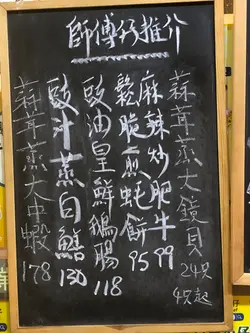 師傅仔推介
蒜茸蒸大鏡貝 24只 4只起
麻辣炒肥牛 99
鬆脆煎蚝餅 95
豉油皇鮮鵝腸 118
豉汁蒸白鱔 130
蒜茸蒸大中蝦 178